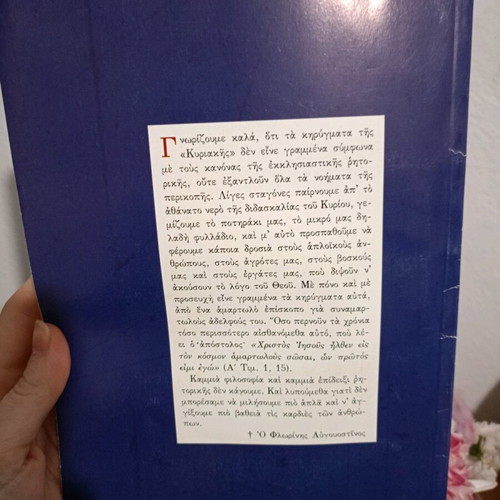 Γνωρίζουμε καλά, ὅτι τὰ κηρύγματα τῆς
«Κυριακῆς» δὲν εἶνε γραμμένα σύμφωνα
μὲ τοὺς κανόνας τῆς ἐκκλησιαστικῆς ῥητο-
ρικῆς, οὔτε ἐξαντλοῦν ὅλα τὰ νοήματα τῆς
περικοπῆς. Λίγες σταγόνες παίρνουμε ἀπ' τὸ
ἀθάνατο νερὸ τῆς διδασκαλίας τοῦ Κυρίου, γε-
μίζουμε τὸ ποτηράκι μας, τὸ μικρό μας δη-
λαδὴ φυλλάδιο, καὶ μ' αὐτὸ προσπαθοῦμε νὰ
φέρουμε κάποια δροσιὰ στοὺς ἁπλοϊκοὺς ἀν-
θρώπους, στοὺς ἀγρότες μας, στοὺς βοσκούς
μας καὶ στοὺς ἐργάτες μας, ποὺ διψοῦν ν'
ἀκούσουν τὸ λόγο τοῦ Θεοῦ. Μὲ πόνο καὶ μὲ
προσευχὴ εἶνε γραμμένα τὰ κηρύγματα αὐτά,
ἀπὸ ἕνα ἁμαρτωλὸ ἐπίσκοπο γιὰ συναμαρ-
τωλοὺς ἀδελφούς του. Ὅσο περνοῦν τὰ χρόνια
τόσο περισσότερο αἰσθανόμεθα αὐτό, ποὺ λέ-
ει ὁ ἀπόστολος· «Χριστὸς Ἰησοῦς ἦλθεν εἰς
τὸν κόσμον ἁμαρτωλοὺς σῶσαι, ὧν πρῶτός
εἰμι ἐγώ» (Α' Τιμ. 1, 15).
Καμμιά φιλοσοφία καὶ καμμιά ἐπίδειξι ῥη-
τορικῆς δὲν κάνουμε. Καὶ λυπούμεθα γιατὶ δὲν
μπορέσαμε νὰ μιλήσουμε πιὸ ἁπλᾶ καὶ ν' ἀγ-
γίξουμε πιὸ βαθειὰ τὶς καρδιὲς τῶν ἀνθρώ-
πων.
† Ὁ Φλωρίνης Αὐγουστῖνος